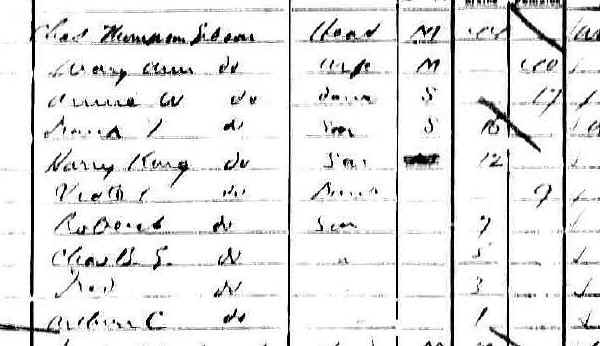 Chas Thompson Gibson Head M
Mary Ann do Wife M 40
Annie W do Daur S 17
Frank T do Son S 16
Harry King do Son 12
do Daur 9
Robert do Son 7
Charles G. do " 5
Fred do 3
Arthur C do 1